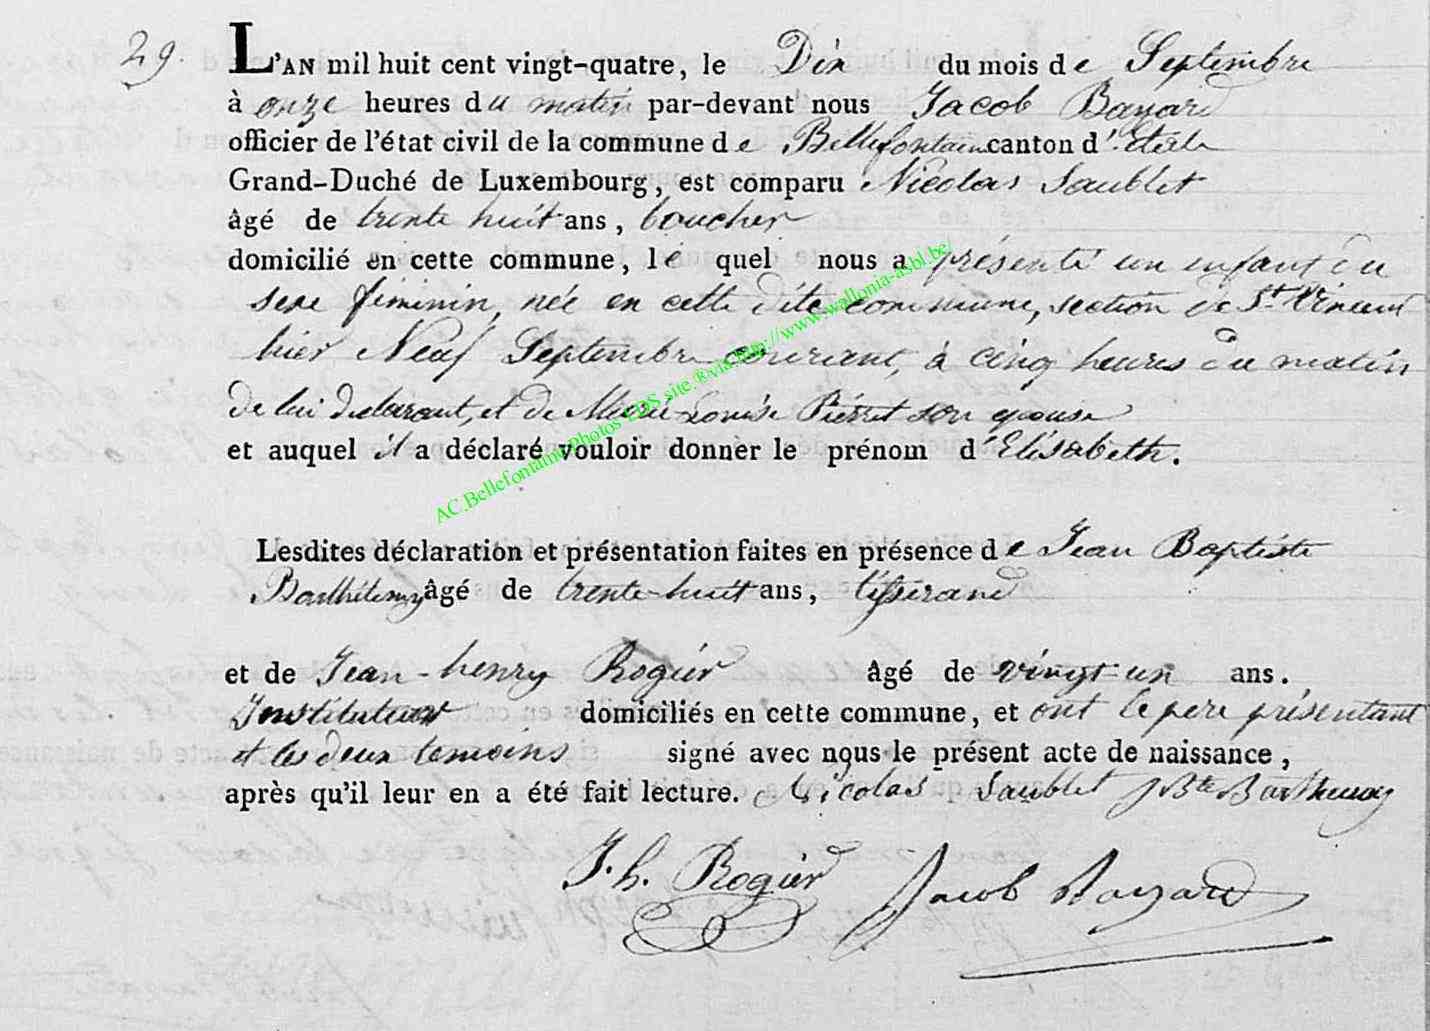 29.
L'AN mil huit cent vingt-quatre, le Dix du mois de Septembre
à onze heures du matin par-devant nous Jacob Bayard
officier de l'état civil de la commune de Bellefontaine canton d'Etalle
Grand-Duché de Luxembourg, est comparu Nicolas Saublet
âgé de trente huit ans, boucher
domicilié en cette commune, le quel nous a présenté un enfant du
sexe féminin, née en cette dite commune, section de St. Vincent
hier Neuf Septembre courant, à cinq heures du matin
de lui déclarant, et de Marie-Louise Pierret son epouse
et auquel il a déclaré vouloir donner le prénom d'Elisabeth.
AC.Bellefontaine photos EDS site.®via http://www.wallonia-asbl.be/
Lesdites déclaration et présentation faites en présence de Jean Baptiste
Barthélemy âgé de trente-huit ans, tisserand
et de Jean-henry Rogier âgé de vingt-un ans.
Instituteur domiciliés en cette commune, et ont le pere présentant
et les deux temoins signé avec nous le présent acte de naissance,
après qu'il leur en a été fait lecture. Nicolas Saublet J Bte Barthelemy
J. h. Rogier Jacob Bayard